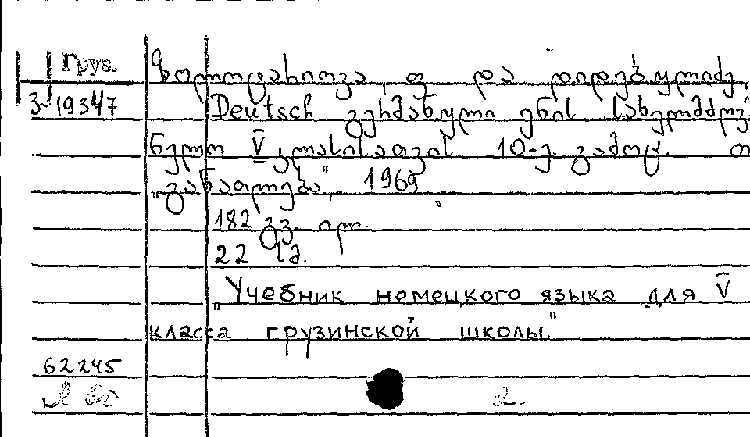 Груз.
ზოლოტარიოვა, თ და დიდებულიძე,
3-19347 Deutsch გერმანული ენის სახელმძღვ
ნელო V̅ კლასისათვის 10-ე გამოც. თ
„განათლება", 1969
182 გვ. ილ.
22 სმ.
„Учебник немецкого языка для V̅
класса грузинской школы"
62245
2.